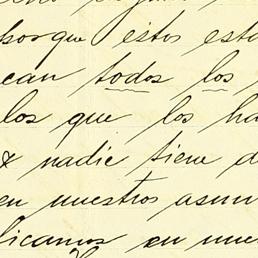 porque éstos esta
can todos los
los que los ha
& nadie tiene d
en nuestros asun
licamos en nues